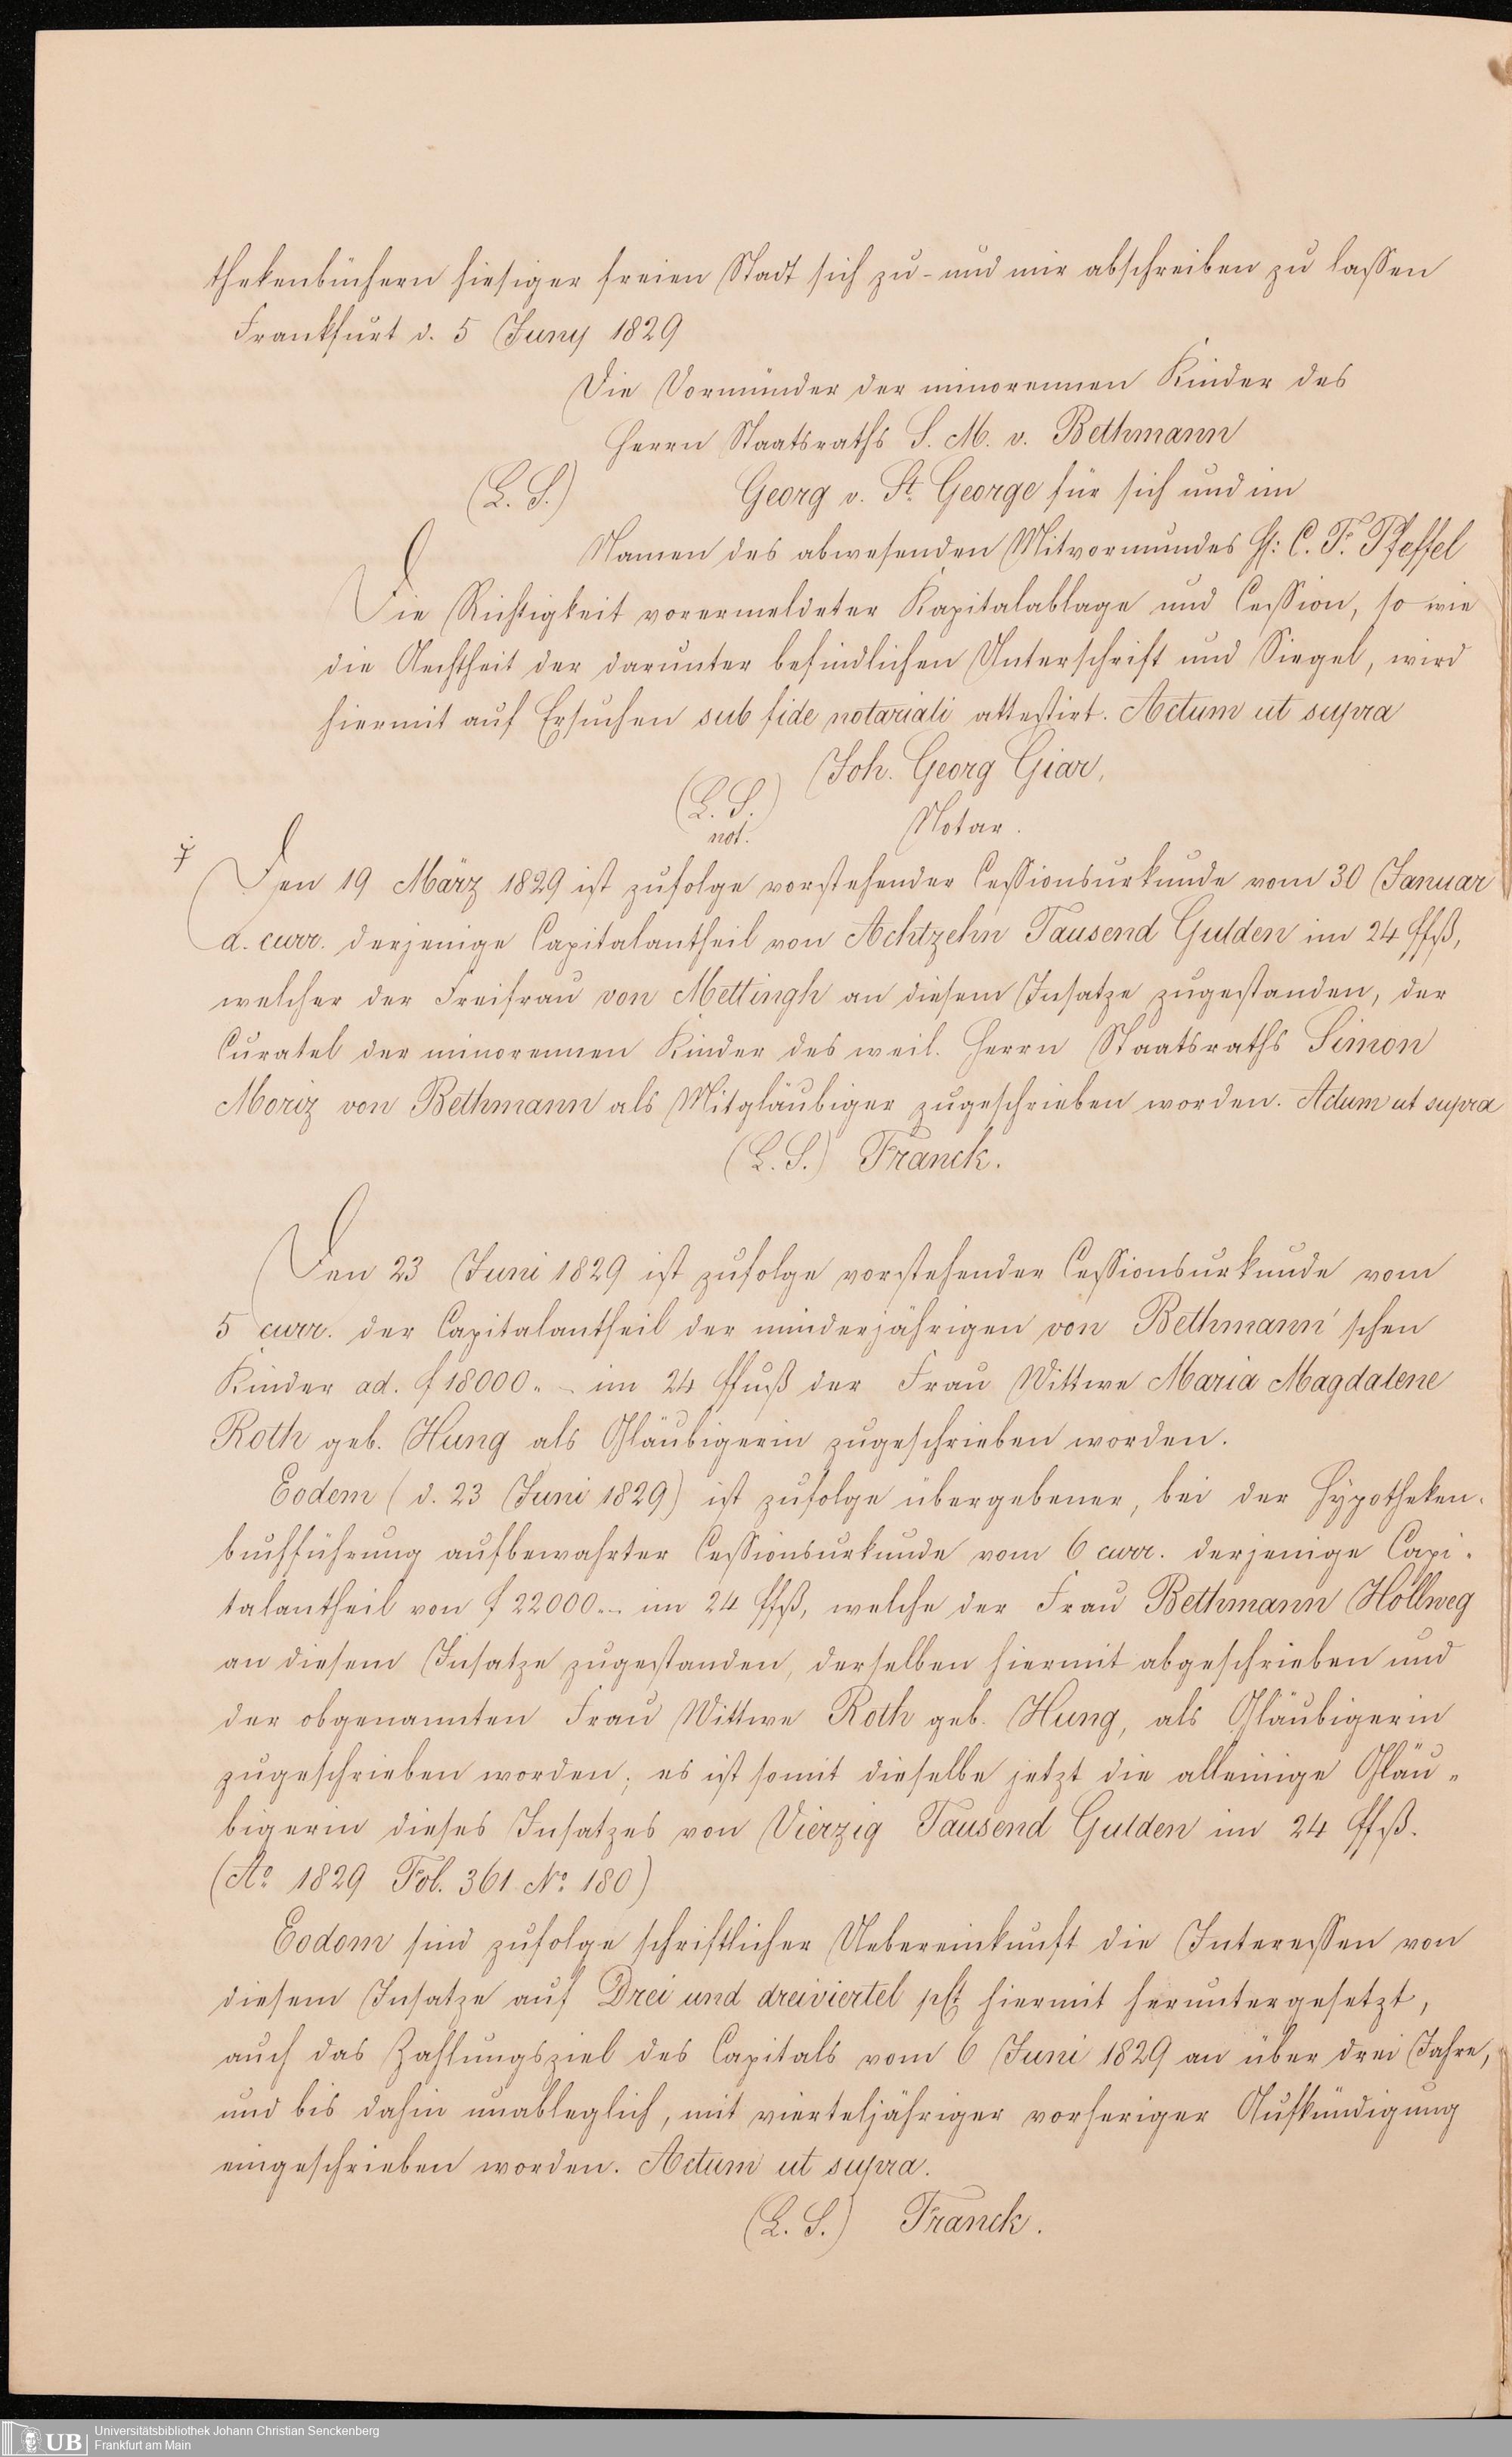 thekenbüchern hiesiger freien Stadt sich zu- und mir abschreiben zu lassen
Frankfurt d. 5 Juny 1829
Die Vormünder der minorennen Kinder des
Herrn Staatsraths S. M. v. Bethmann
(L. S.) Georg v. St. George für sich und im
Namen des abwesenden Mitvormundes H: C. F. Pfeffel
Die Richtigkeit vorermeldeter Kapitalablage und Cession, so wie
die Aechtheit der darunter befindlichen Unterschrift und Siegel, wird
hiermit auf Ersuchen sub fide notariali attestirt. Actum ut supra
Joh. Georg Giar,
(L. S.) Notar.
not.
Den 19 März 1829 ist zufolge vorstehender Cessionsurkunde vom 30 Januar
a. curr. derjenige Capitalantheil von Achtzehn Tausend Gulden im 24 ffß,
welcher der Freifrau von Mettingh an diesem Insatze zugestanden, der
Curatel der minorennen Kinder des weil. Herrn Staatsraths Simon
Moriz von Bethmann als Mitgläubiger zugeschrieben worden. Actum ut supra
(L. S.) Franck.
Den 23 Juni 1829 ist zufolge vorstehender Cessionsurkunde vom
5 curr. der Capitalantheil der minderjährigen von Bethmann'schen
Kinder ad. f 18000.- im 24 ffuß der Frau Wittwe Maria Magdalene
Roth geb. Hung als Gläubigerin zugeschrieben worden.
Eodem (d. 23 Juni 1829) ist zufolge übergebener, bei der Hypotheken-
buchführung aufbewahrter Cessionsurkunde vom 6 curr. derjenige Capi-
talantheil von f 22000.- im 24 ffß, welche der Frau Bethmann Hollweg
an diesem Insatze zugestanden, derselben hiermit abgeschrieben und
der obgenannten Frau Wittwe Roth geb. Hung, als Gläubigerin
zugeschrieben worden; es ist somit dieselbe jetzt die alleinige Gläu-
bigerin dieses Insatzes von Vierzig Tausend Gulden im 24 ffß.
(Ao 1829 Fol. 361 No 180)
Eodem sind zufolge schriftlicher Uebereinkunft die Interessen von
diesem Insatze auf Drei und dreiviertel pCt hiermit heruntergesetzt,
auch das Zahlungsziel des Capitals vom 6 Juni 1829 an über drei Jahre,
und bis dahin unableglich, mit vierteljähriger vorheriger Aufkündigung
eingeschrieben worden. Actum ut supra.
(L. S.) Franck.
UB
Universitätsbibliothek Johann Christian Senckenberg
Frankfurt am Main